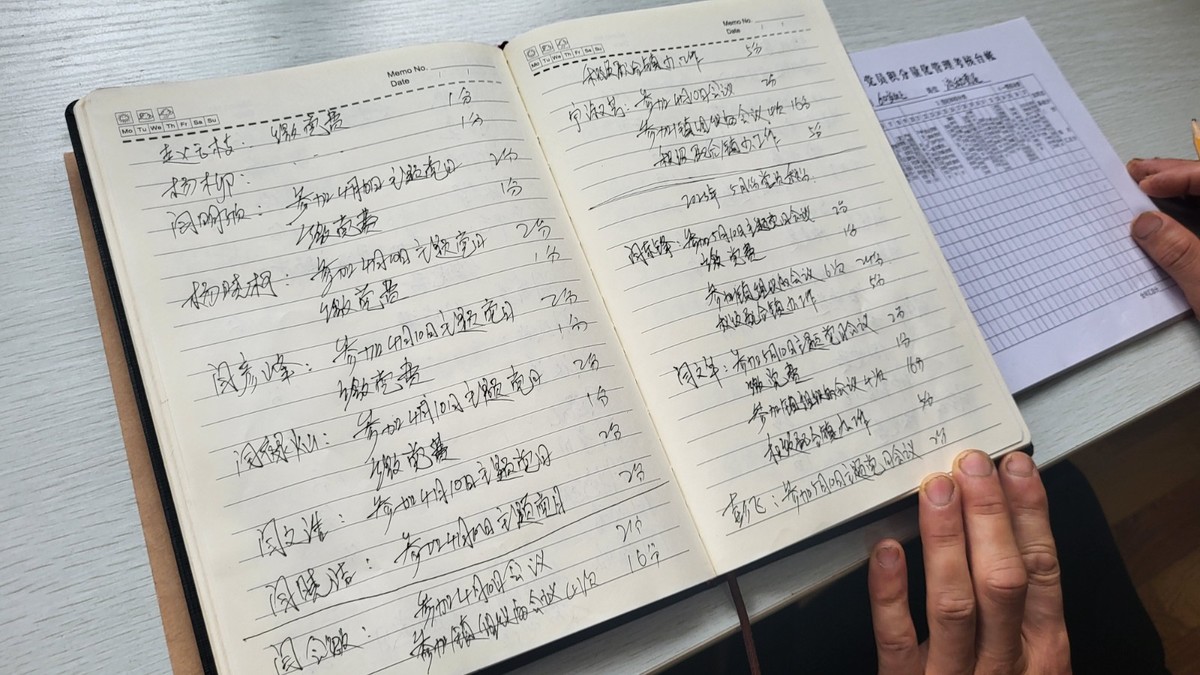 Memo No.
Date
Mo Tu We Th Fr Sa Su
缴党费 1分
杨柳: 1分
闫明顺: 参加4月10日主题党日 2分
缴党费 1分
杨晓柯: 参加4月10日主题党日 2分
缴党费 1分
闫彦峰: 参加4月10日主题党日 2分
缴党费 1分
参加4月10日主题党日 2分
缴党费 1分
闫文进: 参加4月10日主题党日 2分
闫晓洁: 参加4月10日主题党日 2分
闫会敏: 参加4月10日会议 2分
参加镇组织的会议4次 16分
Memo No.
Date
Mo Tu We Th Fr Sa Su
积极配合镇办工作 5分
参加4月10日会议 2分
参加镇组织的会议4次 16分
积极配合镇办工作 5分
2025年5月份党员积分
参加5月10日主题党日会议 2分
缴党费 1分
参加镇组织的会议6次 24分
积极配合镇办工作 5分
闫文革: 参加5月10日主题党日会议 2分
缴党费 1分
参加镇组织的会议4次 16分
积极配合镇办工作 5分
彭飞: 参加5月10日主题党日会议 2分
党员积分量化管理考核台账